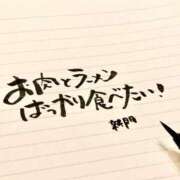 お肉とラーメン
ばっかり食べたい！